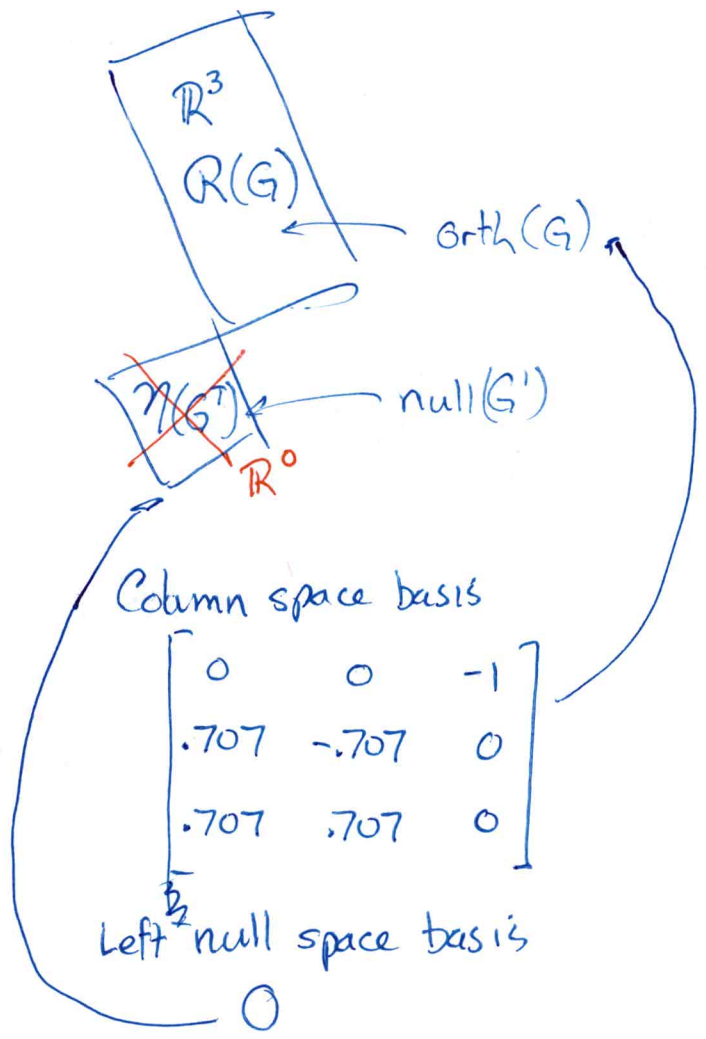 ℝ³
R(G)
orth(G)
η(Gᵀ)
null(G')
ℝ⁰
Column space basis
0 0 -1
.707 -.707 0
.707 .707 0
Left null space basis
0